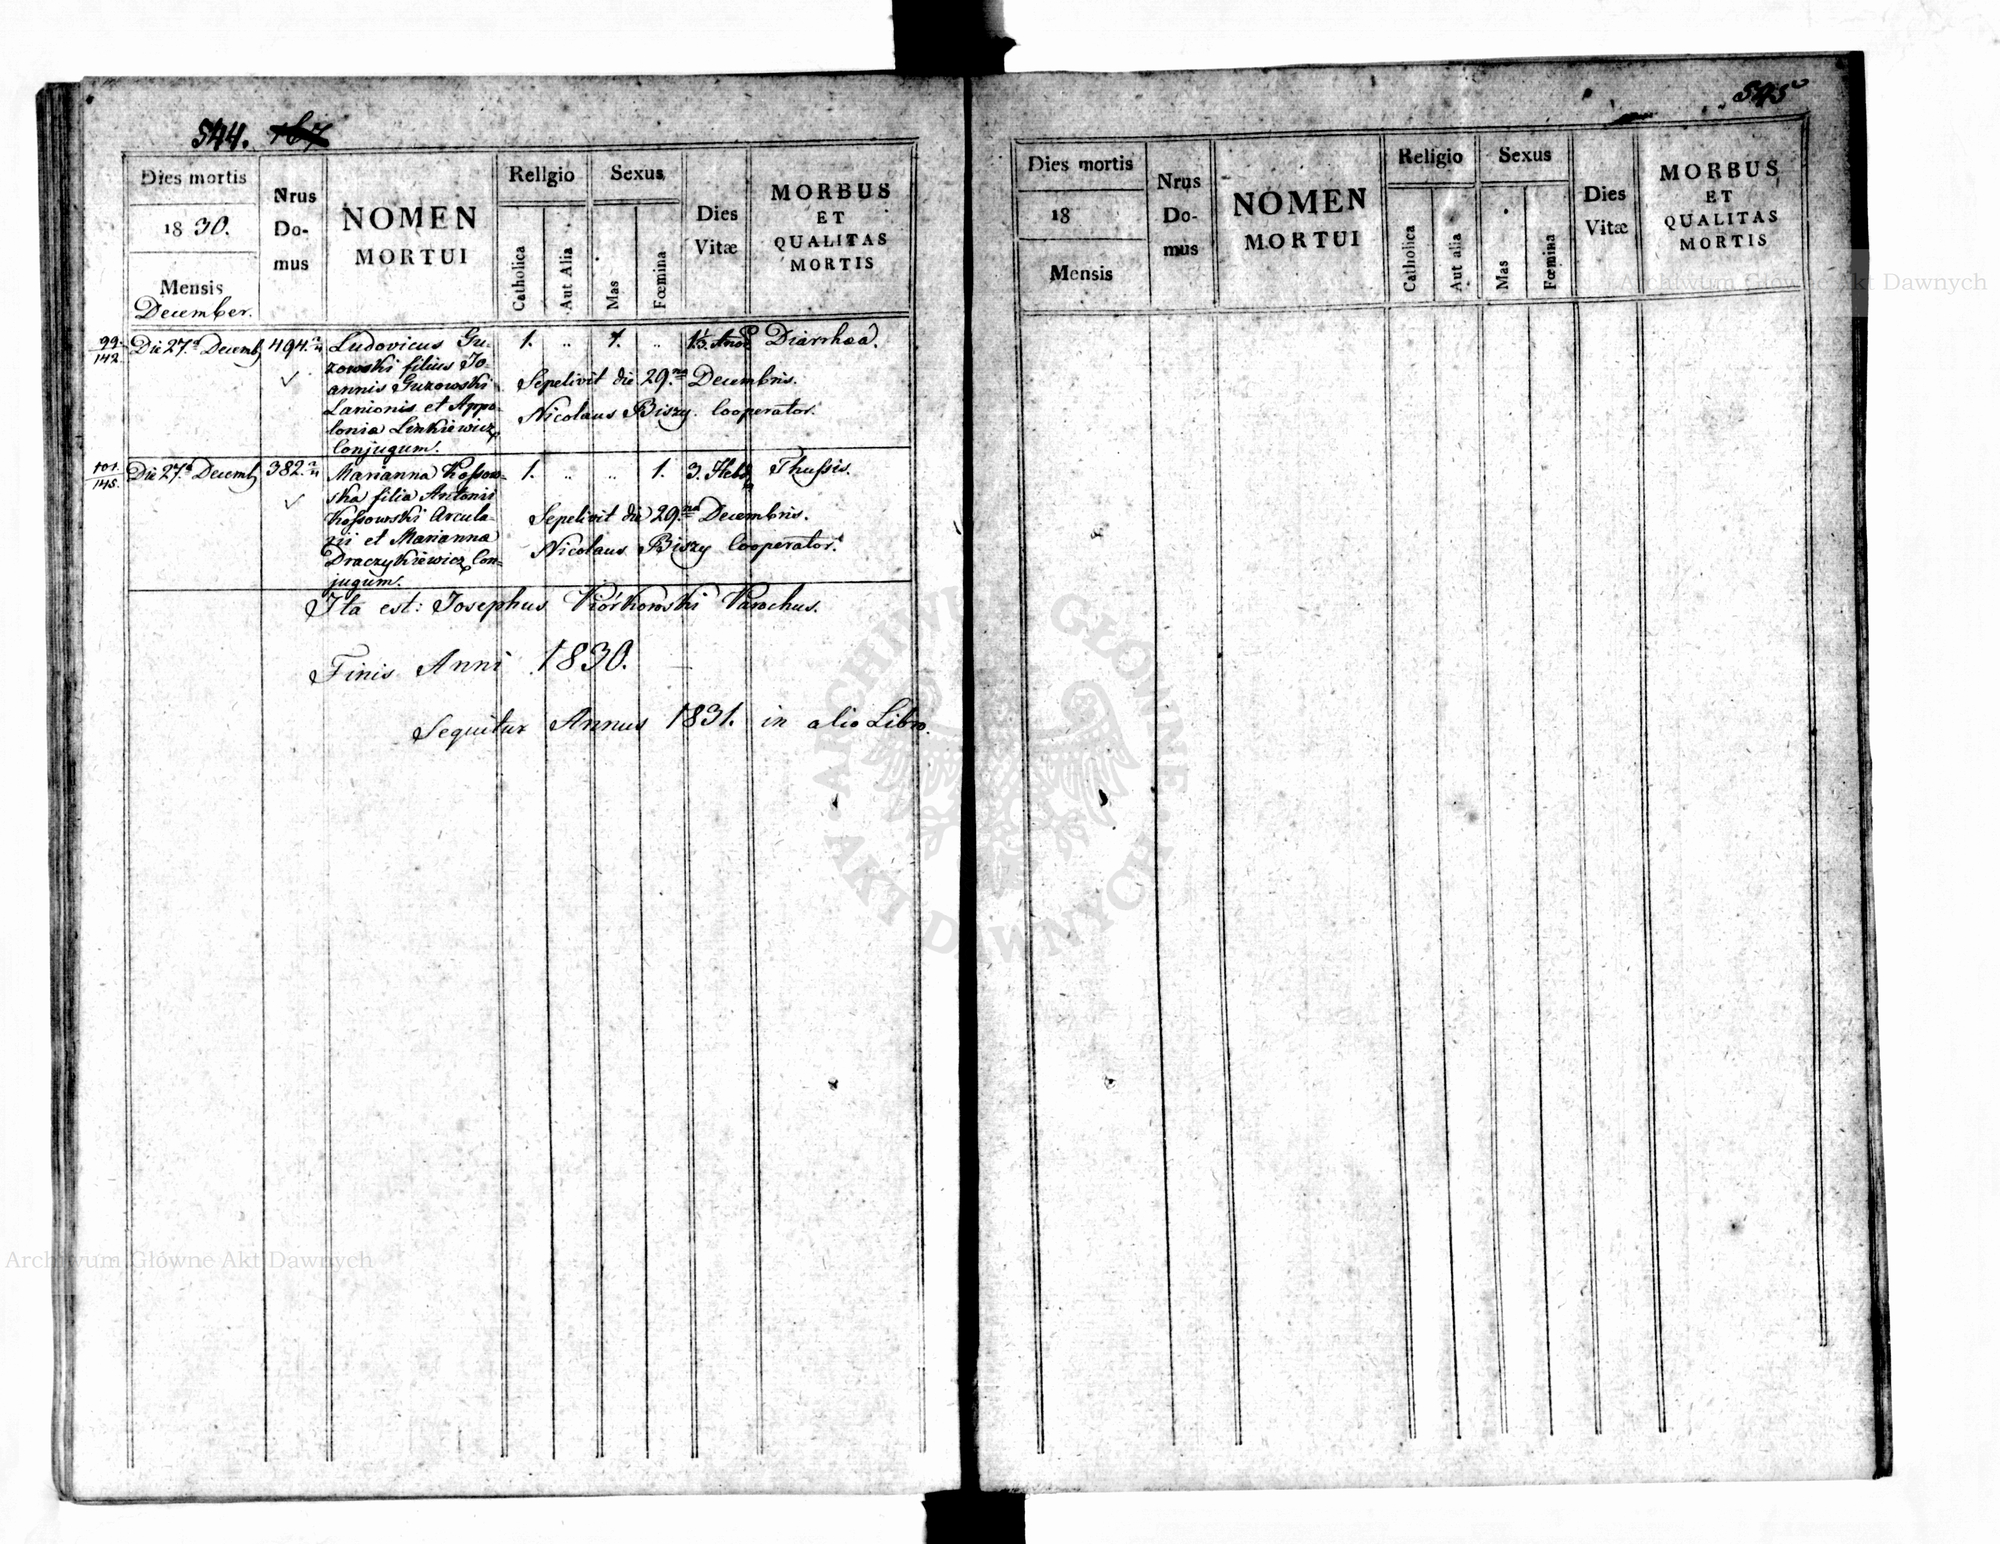 544. 167
Dies mortis
1830.
Mensis
December.
Nrus
Do-
mus
NOMEN
MORTUI
Religio
Catholica
Aut Alia
Sexus
Mas
Fœmina
Dies
Vitæ
MORBUS
ET
QUALITAS
MORTIS
99.
142.
Die 27a Decemb
494.
Ludovicus Gu-
zowski filius Jo
annis Guzowski
Lanionis et Appo-
lonia Linkiewicz
Conjugum.
1. „ 1. „
Diarrhœa.
Sepelivit die 29na Decembris.
Nicolaus Biszy. Cooperator.
101.
145.
Die 27a Decemb
382.
Marianna Kossow-
ska filia Antonii
Kossowski Arcula-
rii et Marianna
Draczykiewicz Con-
jugum.
1. „ „ 1. 3. Hebd Thussis.
Sepelivit die 29na Decembris.
Nicolaus Biszy Cooperator.
Ita est: Josephus Kiórkowski Parochus.
Finis Anni 1830.
Sequitur Annus 1831. in alio Libro.
545
Dies mortis
18
Mensis
Nrus
Do-
mus
NOMEN
MORTUI
Religio
Catholica
Aut alia
Sexus
Mas
Fœmina
Dies
Vitæ
MORBUS
ET
QUALITAS
MORTIS
Archiwum Główne Akt Dawnych
ARCHIWUM GŁÓWNE
AKT DAWNYCH
Archiwum Główne Akt Dawnych